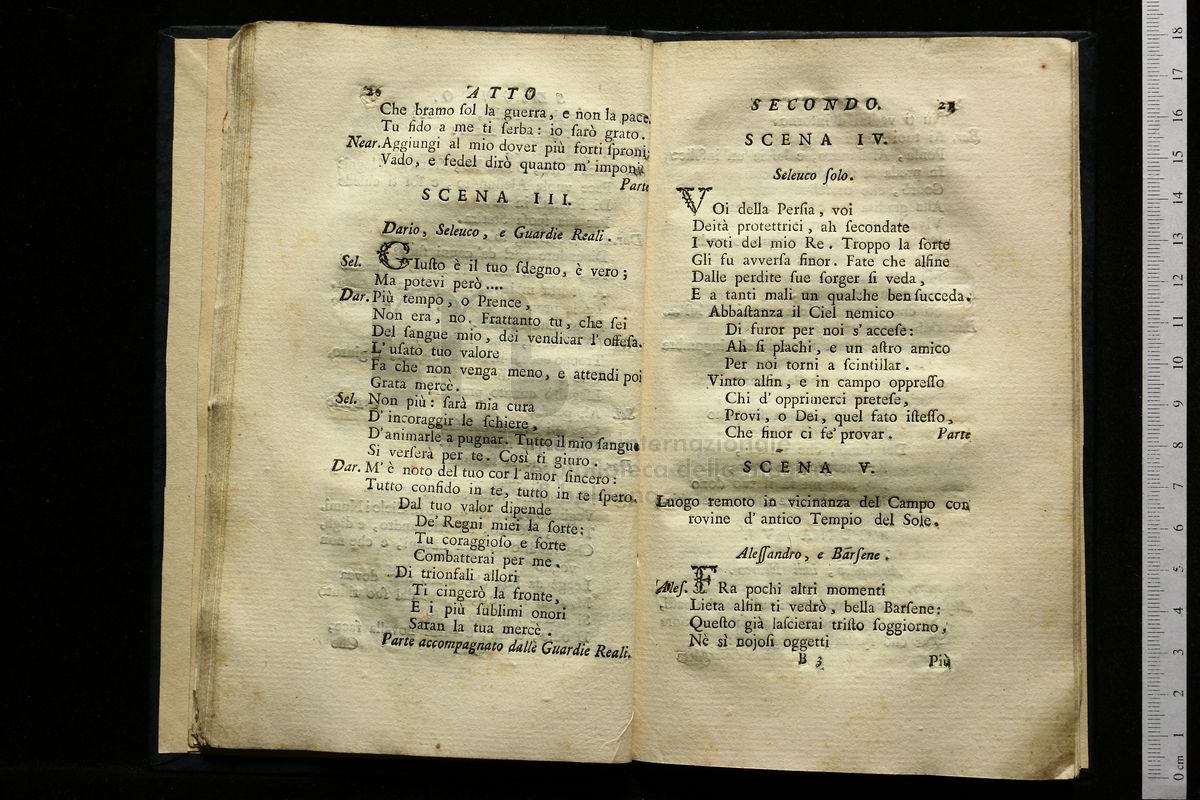 20 ATTO
Che bramo ſol la guerra, e non la pace.
Tu fido a me ti ſerba: io ſarò grato.
Near. Aggiungi al mio dover più forti ſproni;
Vado, e fedel dirò quanto m' imponi.
Parte
SCENA III.
Dario, Seleuco, e Guardie Reali.
Sel. GIuſto è il tuo ſdegno, è vero;
Ma potevi però ....
Dar. Più tempo, o Prence,
Non era, no. Frattanto tu, che ſei
Del ſangue mio, dei vendicar l' offeſa.
L' uſato tuo valore
Fa che non venga meno, e attendi poi
Grata mercè.
Sel. Non più: ſarà mia cura
D' incoraggir le ſchiere,
D'animarle a pugnar. Tutto il mio ſangue
Si verſerà per te. Così ti giuro.
Dar. M' è noto del tuo cor l'amor ſincero:
Tutto confido in te, tutto in te ſpero.
Dal tuo valor dipende
De' Regni miei la ſorte:
Tu coraggioſo e forte
Combatterai per me.
Di trionfali allori
Ti cingerò la fronte,
E i più ſublimi onori
Saran la tua mercè.
Parte accompagnato dalle Guardie Reali.
SECONDO. 21
SCENA IV.
Seleuco ſolo.
VOi della Perſia, voi
Deità protettrici, ah ſecondate
I voti del mio Re. Troppo la ſorte
Gli fu avverſa finor. Fate che alfine
Dalle perdite ſue ſorger ſi veda,
E a tanti mali un qualche ben ſucceda.
Abbaſtanza il Ciel nemico
Di furor per noi s' acceſe:
Ah ſi plachi, e un aſtro amico
Per noi torni a ſcintillar.
Vinto alfin, e in campo oppreſſo
Chi d' opprimerci preteſe,
Provi, o Dei, quel fato iſteſſo,
Che finor ci fe' provar. Parte
SCENA V.
Luogo remoto in vicinanza del Campo con
rovine d' antico Tempio del Sole.
Aleſſandro, e Barſene.
Aleſ. FRa pochi altri momenti
Lieta alfin ti vedrò, bella Barſene:
Queſto già laſcierai triſto ſoggiorno,
Nè sì nojoſi oggetti
B 3 Più
0 cm 1 2 3 4 5 6 7 8 9 10 11 12 13 14 15 16 17 18